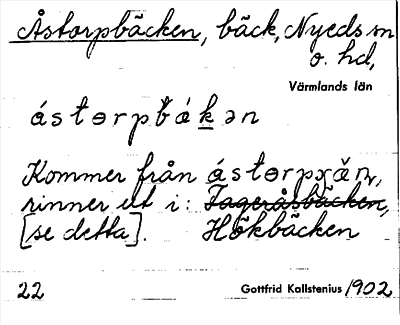 Åstorpbäcken, bäck, Nyeds sn
o. hd,
Värmlands län
ástɵrpbǻkən
Kommer från ástɵrpʂǻn,
rinner ut i: Fageråsbäcken,
[se detta]. Hökbäcken
22 Gottfrid Kallstenius 1902